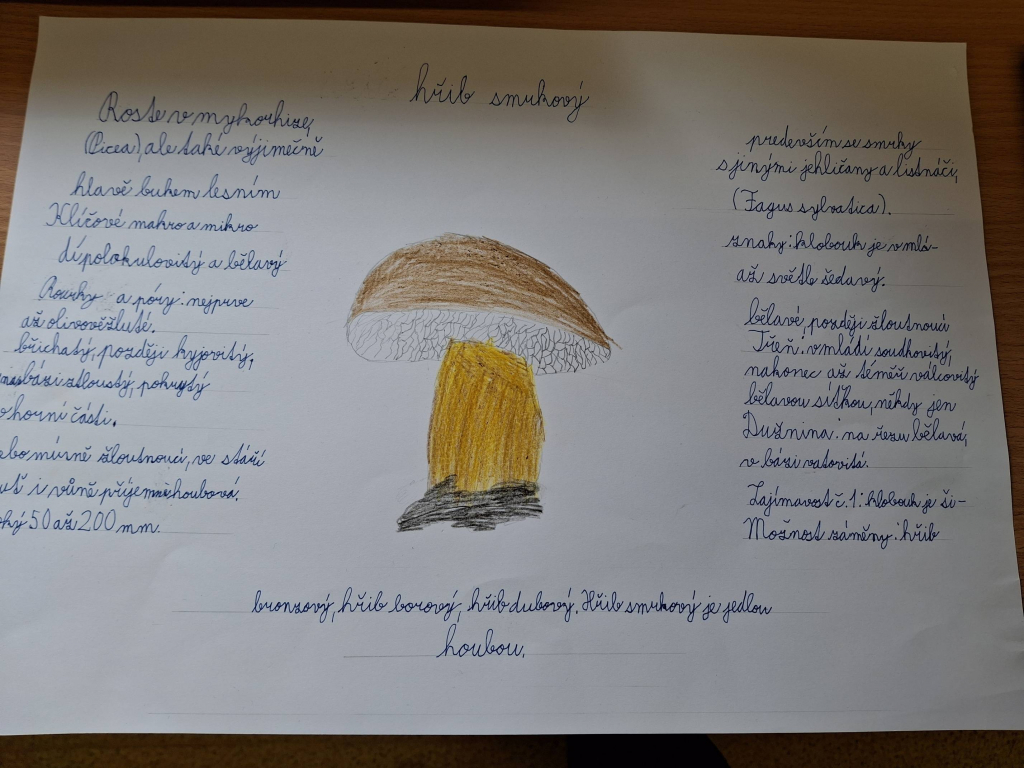 hřib smrkový
Roste v mykorhize,
především se smrky
(Picea), ale také výjimečně
s jinými jehličany a listnáči,
hlavě bukem lesním
(Fagus sylvatica).
Klíčové makro a mikro
znaky: klobouk je v mlá-
dí polokulovitý a bělavý
až světle šedavý.
Rourky a póry: nejprve
bělavé, později žloutnoucí
až olivověžluté.
Třeň: v mládí soudkovitý,
břichatý, později kyjovitý,
nakonec až téměř válcovitý
bázi ztloustý, pokrytý
bělavou síťkou, někdy jen
horní části.
Dužnina: na řezu bělavá,
ebo mírně žloutnoucí, ve stáří
v bázi vatovitá.
uť i vůně příjemně houbová.
Zajímavost č. 1: klobouk je ši-
oký 50 až 200 mm.
Možnost záměny: hřib
bronzový, hřib borový, hřib dubový. Hřib smrkový je jedlou
houbou.